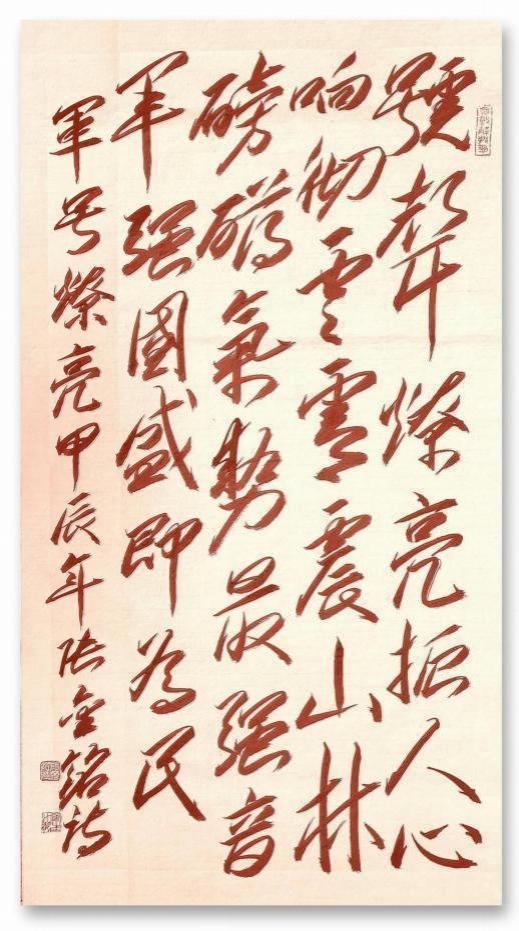 號聲燎亮振人心
响彻雲霄震山林
磅礴氣勢最强音
军强國盛即為民
軍号燎亮甲辰年张金銘诗